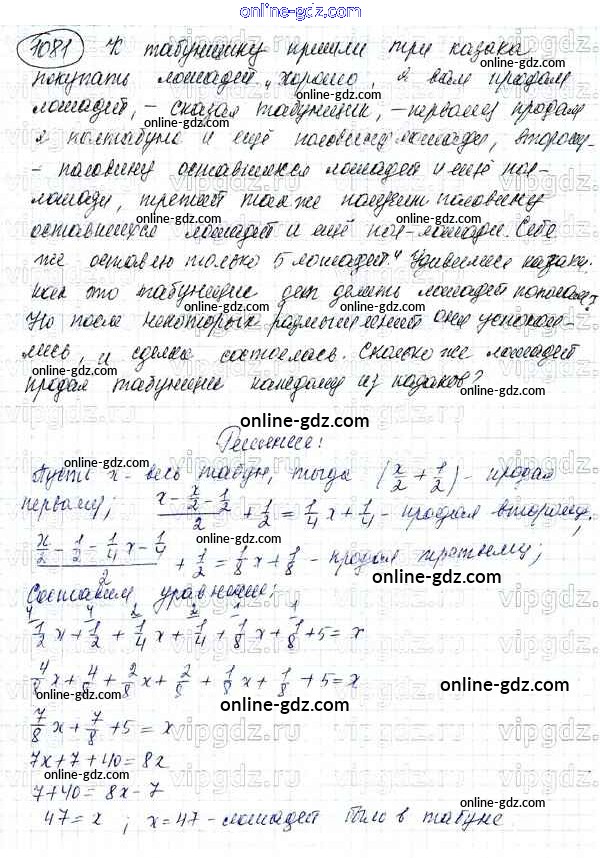 online-gdz.com
1081 К табунщику пришли три казака
покупать лошадей. „Хорошо, я вам продам
лошадей, – сказал табунщик, – первому продам
я полтабуна и ещё половину лошади, второму
– половину оставшихся лошадей и ещё пол-
лошади, третий также получит половину
оставшихся лошадей и ещё пол-лошади. Себе
же оставлю только 5 лошадей." Удивились казаки,
как это табунщик будет делить лошадей пополам?
Но после некоторых размышлений они успокои-
лись, и сделка состоялась. Сколько же лошадей
продал табунщик каждому из казаков?
online-gdz.com
Решение:
Пусть x - весь табун, тогда (x/2 + 1/2) - продал
первому; (x - x/2 - 1/2)/2 + 1/2 = 1/4 x + 1/4 - продал второму;
(x/2 - 1/2 - 1/4 x - 1/4)/2 + 1/2 = 1/8 x + 1/8 - продал третьему;
Составим уравнение:
1/2 x + 1/2 + 1/4 x + 1/4 + 1/8 x + 1/8 + 5 = x
4/8 x + 4/8 + 2/8 x + 2/8 + 1/8 x + 1/8 + 5 = x
7/8 x + 7/8 + 5 = x
7x + 7 + 40 = 8x
7 + 40 = 8x - 7
47 = x ; x = 47 - лошадей было в табуне